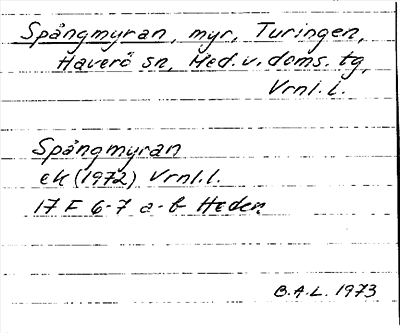 Spångmyran, myr, Turingen,
Haverö sn, Med. v. doms. tg,
Vrnl. l.
Spångmyran
ek (1972) Vrnl. l.
17 F 6-7 a-b Heden
B.A.L. 1973